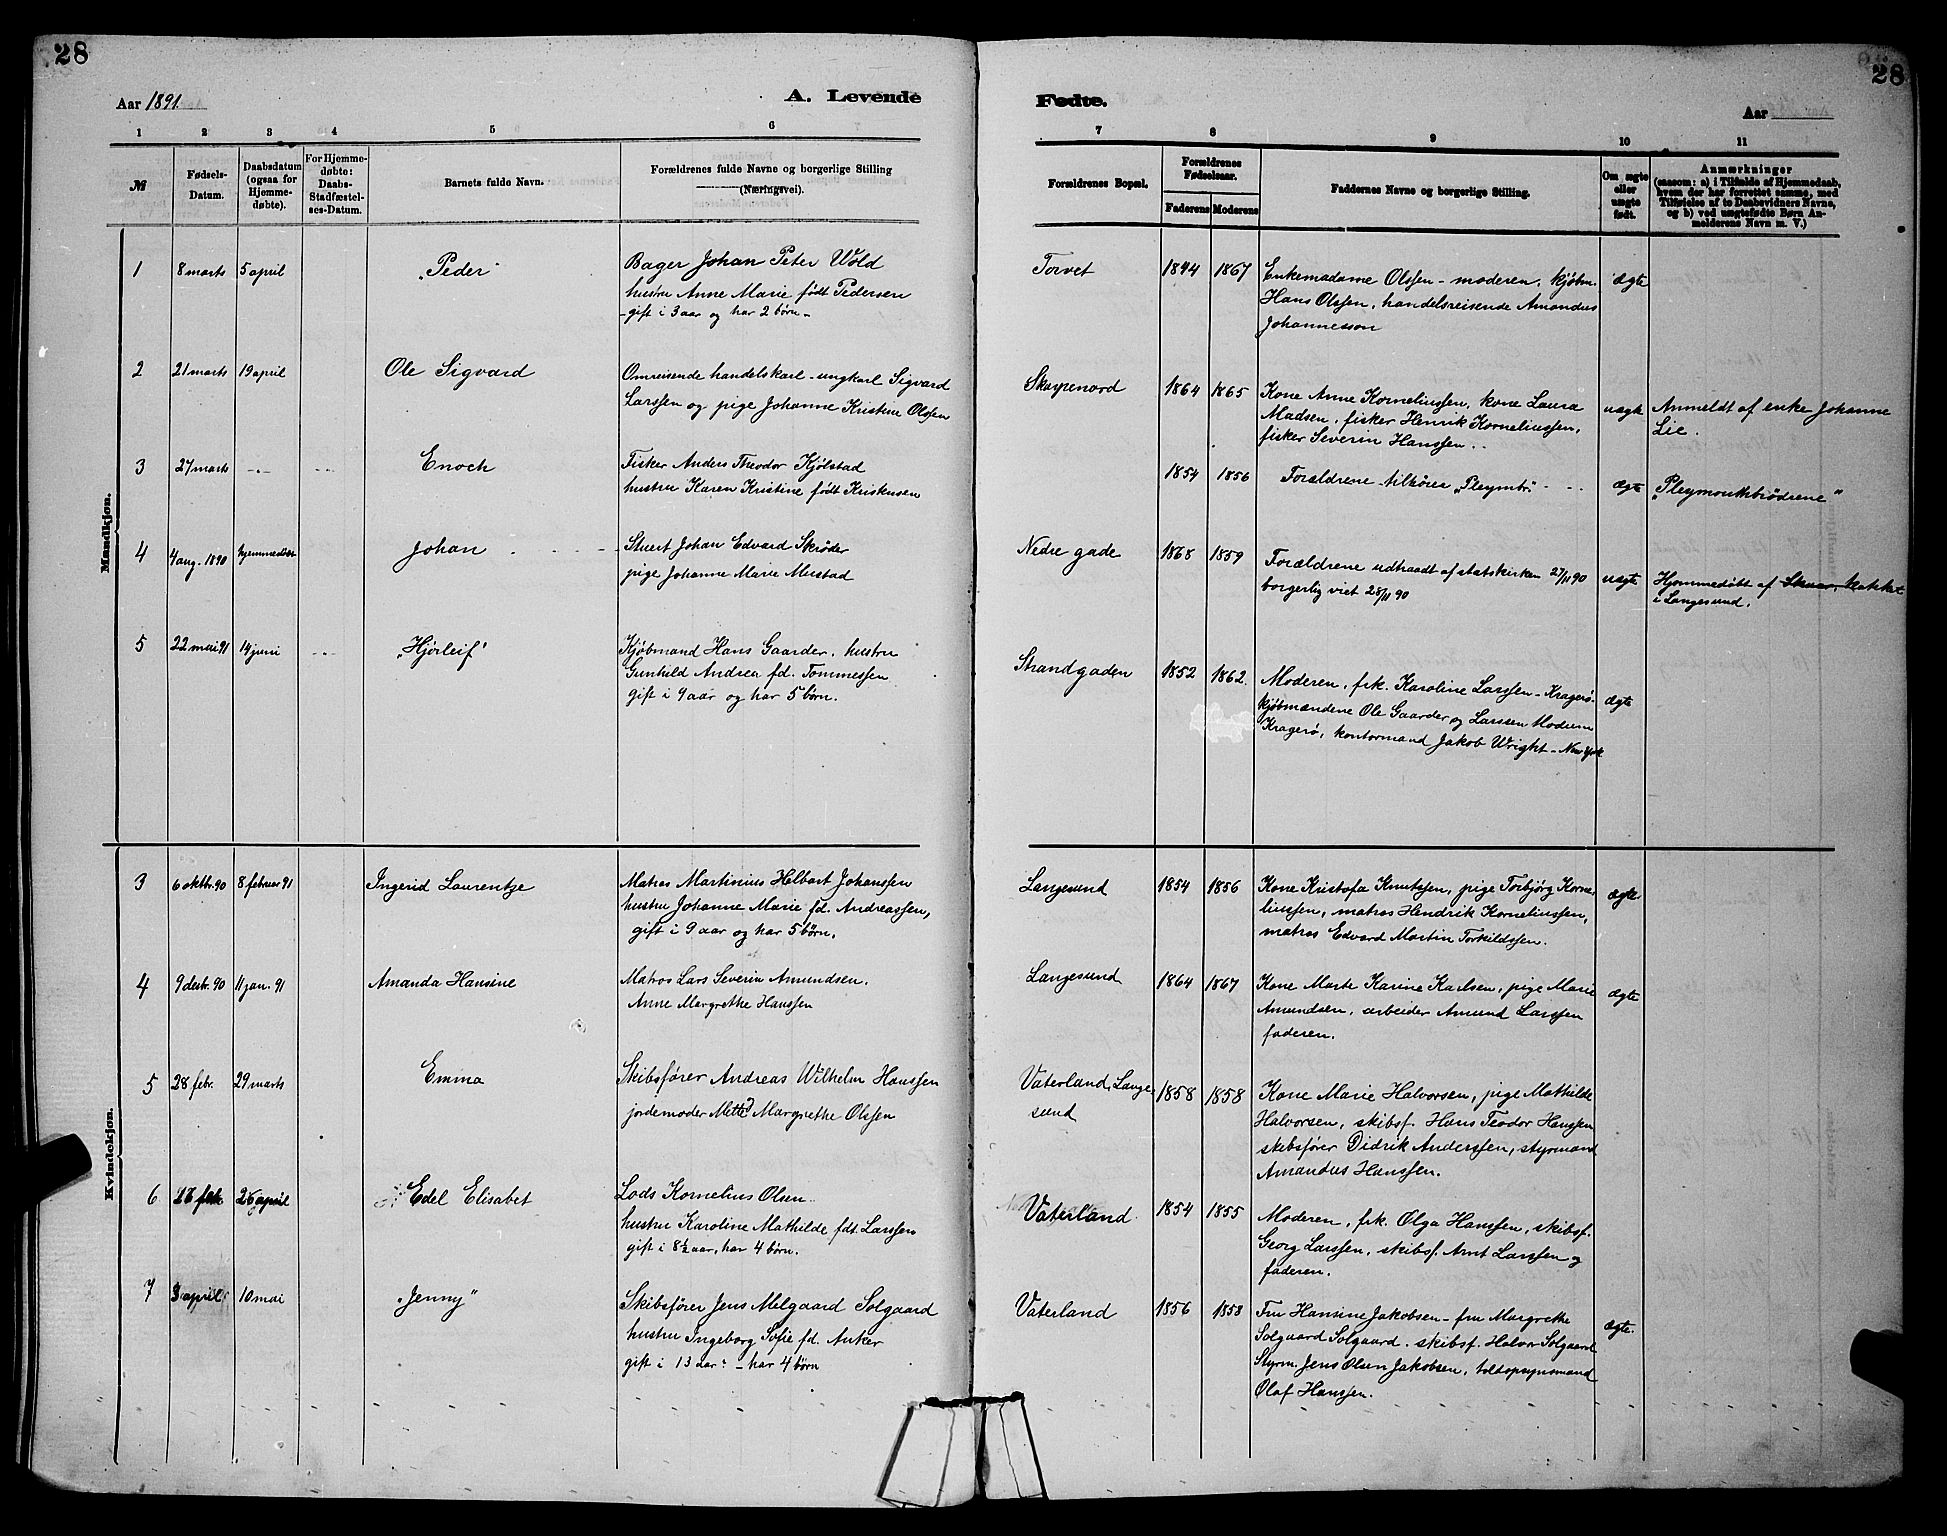 28
Aar 1891.
A. Levende
1 2 3 4 5 6
№
Fødsels-Datum.
Daabsdatum (ogsaa for Hjemme-døbte).
For Hjemme-døbte: Daabs-Stadfæstel-ses-Datum.
Barnets fulde Navn.
Forældrenes fulde Navne og borgerlige Stilling
(Næringsvei).
Mandkjøn.
1 8 marts 5 april „Peder“ Bager Johan Peter Wold
hustru Anne Marie født Pedersen
- gift i 3 aar og har 2 børn -
2 21 marts 19 april Ole Sigvard Omreisende handelskarl - ungkarl Sigvard
Larssen og pige Johanne Kristine Olssen
3 27 marts -..- -..- Enoch Fisker Anders Theodor Kjølstad
hustru Karen Kristine født Kristensen
4 4 aug. 1890 hjemmedøbt Johan Stuert Johan Edvard Skrøder
pige Johanne Marie Mustad
5 22 mai 91 14 juni -..- „Hjørleif“ Kjøbmand Hans Gaarder, hustru
Gunhild Andrea fd. Tommessen
gift i 9 aar og har 5 børn.
Kvindekjøn.
3 6 oktbr. 90 8 februar 91 Ingerid Laurentze Matros Martinius Helbart Johanssen
hustru Johanne Marie fd. Andreassen,
gift i 9 aar og har 5 børn.
4 9 decbr. 90 11 jan. 91 Amanda Hansine Matros Lars Severin Amundsen.
Anne Margrethe Hanssen
5 28 febr. 29 marts Emma Skibsfører Andreas Wilhelm Hanssen
jordemoder Mette Margrethe Olssen
6 april Edel Elisabet Lods Kornelius Olsen
hustru Karoline Mathilde fdt. Larssen
gift i 8½ aar, har 4 børn.
7 3 april 10 mai „Jenny“ Skibsfører Jens Melgaard Solgaard
hustru Ingeborg Sofie fd. Anker
gift i 13 aar - har 4 børn
28
Fødte.
Aar
7 8 9 10 11
Forældrenes Bopæl.
Forældrenes Fødselsaar.
Faderens Moderens
Faddernes Navne og borgerlige Stilling.
Om ægte eller uægte født.
Anmærkninger
(saasom: a) i Tilfælde af Hjemmedaab,
hvem der har forrettet samme, med
Tilføielse af to Daabsvidners Navne,
og b) ved uægtefødte Børn An-
melderens Navn m. V.)
Torvet 1844 1867 Enkemadame Olssen - moderen, kjøbm. ægte
Hans Olssen, handelsreisende Amandus
Johannesson
Skarpenord 1864 1865 Kone Anne Korneliussen, kone Laura uægte Anmeldt af enke Johanne
Madsen, fisker Henrik Korneliussen, Lie.
fisker Severin Hanssen.
1854 1856 Forældrene tilhører „Pleymbr. -..- ægte „Pleymouthbrødrene“
Nedre gade 1868 1859 Forældrene udtraadt af statskirken 27/11 90 uægte Hjemmedøbt af
borgerlig viet 28/11 90 i Langesund.
Strandgaden 1852 1862. Moderen, frk. Karoline Larssen - Kragerø. ægte
kjøbmændene Ole Gaarder og Larssen
Kragerø, kontormand Jakob Wright - New York
Langesund 1854 1856 Kone Kristofa Knutssen, pige Torbjørg Korne- ægte
liussen, matros Hendrik Korneliussen,
matros Edvard Martin Torkildssen.
Langesund 1864 1867 Kone Marte Karine Karlsen, pige Marie ægte
Amundsen, arbeider Amund Larssen
faderen.
Vaterland, Lange- 1858 1858 Kone Marie Halvorsen, pige Mathilde
sund Halvorsen, skibsf. Hans Teodor Hanssen
skibsfører Didrik Anderssen, styrmand
Amandus Hanssen.
Vaterland 1854 1855 Moderen, frk. Olga Hanssen, skibsf.
Georg Larssen, skibsf. Arnt Larssen og
faderen.
Vaterland 1856 1858 Fru Hansine Jakobsen - fru Margrethe ægte.
Solgaard Solgaard. skibsf. Halvor Solgaard
Styrm. Jens Olsen Jakobsen, toldopsynsmand
Olaf Hanssen.